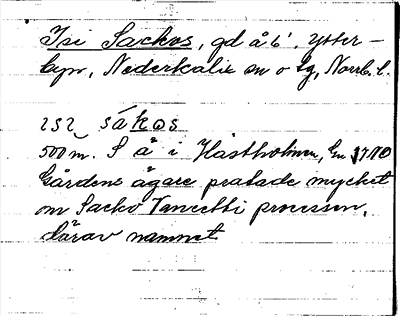 Isi Sackos, gd å 6¹, Ytter-
byn, Nederkalix sn o tg, Norrb. l.
ısı sákos
500 m. S å i Hästholmen, Gn 17:10
Gårdens ägare pratade mycket
om Sacko Vancetti processen,
därav namnet